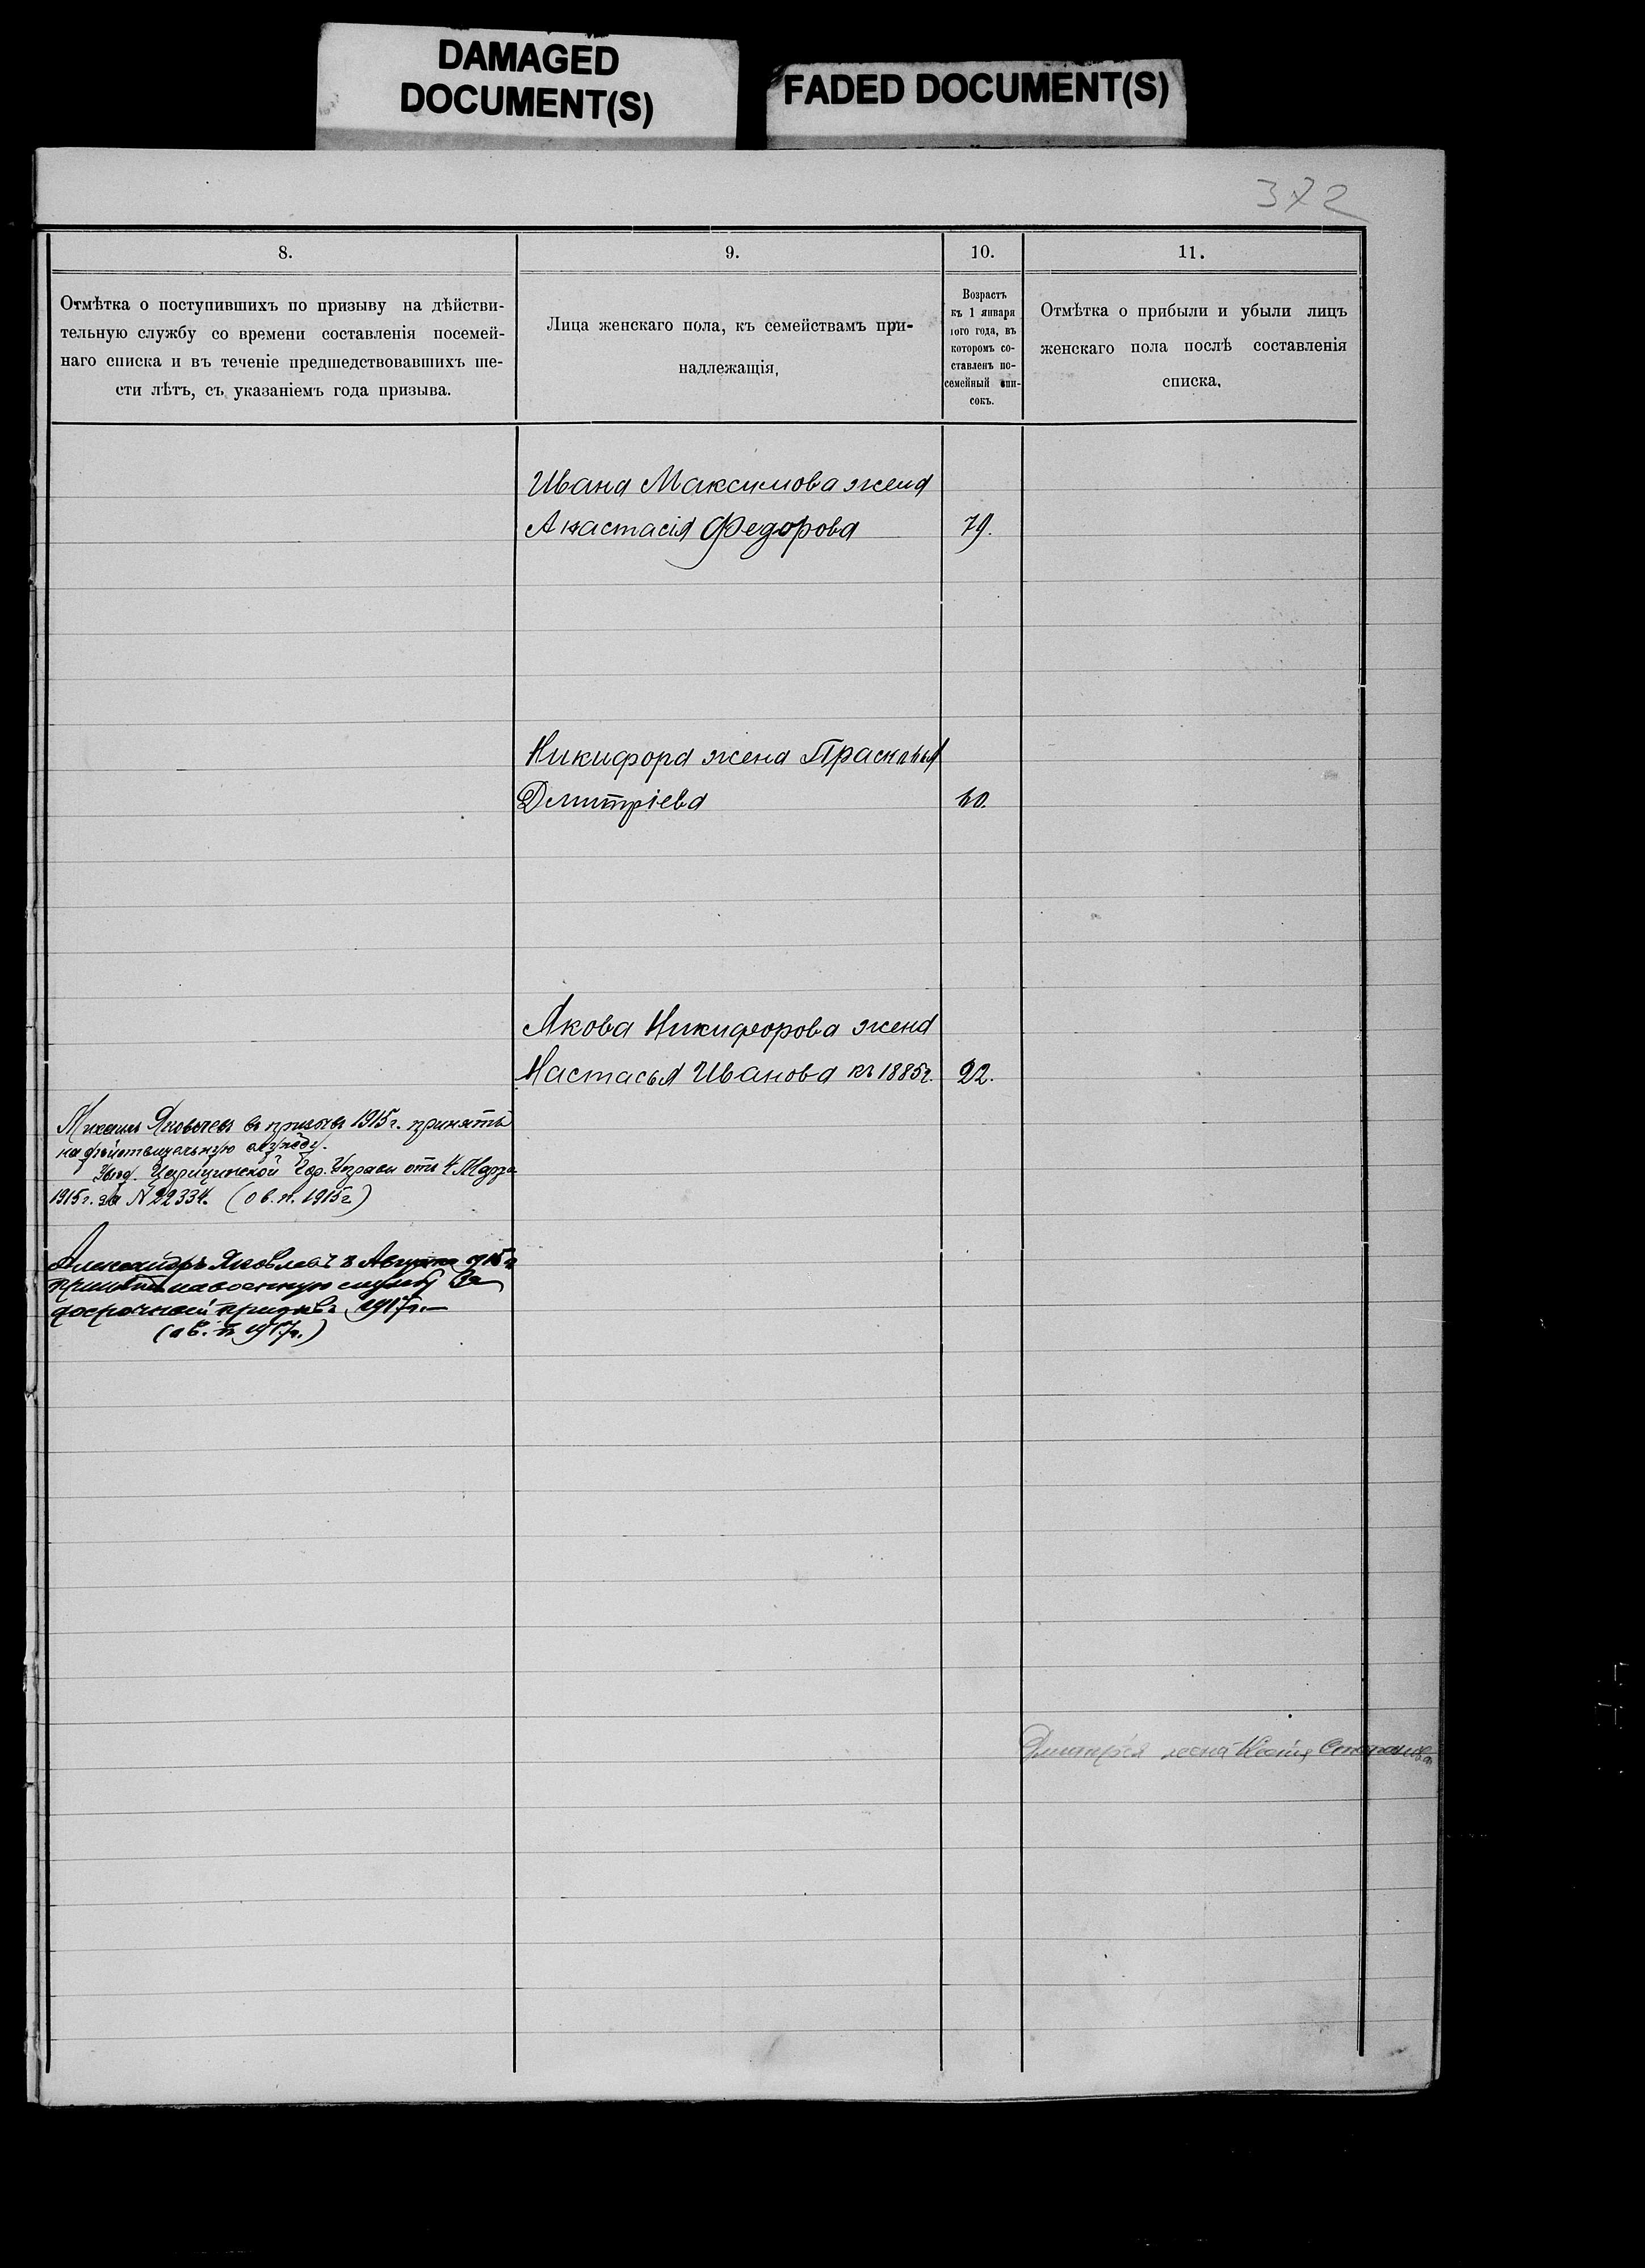 DAMAGED
DOCUMENT(S)
FADED DOCUMENT(S)
372
8.
Отмѣтка о поступившихъ по призыву на дѣйстви-
тельную службу со времени составленія посемей-
наго списка и въ теченіе предшедствовавшихъ ше-
сти лѣтъ, съ указаніемъ года призыва.
9.
Лица женскаго пола, къ семействамъ при-
надлежащія,
10.
Возрастъ
къ 1 января
того года, въ
которомъ со-
ставленъ по-
семейный спи-
сокъ.
11.
Отмѣтка о прибыли и убыли лицъ
женскаго пола послѣ составленія
списка,
Ивана Максимова жена
Анастасія Федорова 79.
Никифора жена Прасковья
Дмитріева 60.
Якова Никифорова жена
Настасья Иванова къ 1885г. 22.
Михаилъ Яковлевъ въ призывъ 1915 г. принятъ
на дѣйствительную службу.
Увѣд. Царицинской Гор. Управы отъ 4
1915 г. за № 22334. (о в. п. 1915 г)
Александръ Яковлевъ 8 Августа 1915 г
принятъ на военную службу въ
досрочный призывъ 1917 г.
(о в. п 1917 г.)
Дмитрія жена Ксенія